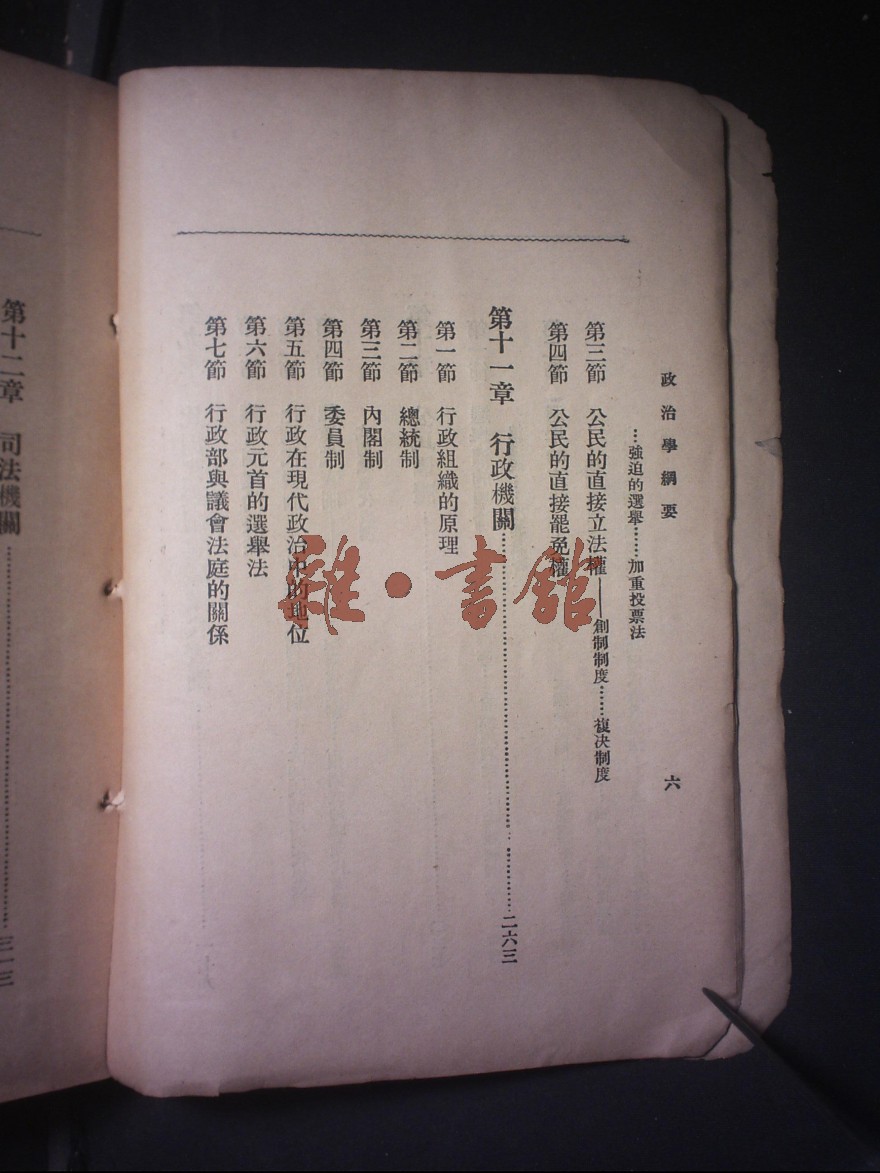 政治學綱要 六
…強迫的選舉……加重投票法
第三節 公民的直接立法權——創制制度……複決制度
第四節 公民的直接罷免權
第十一章 行政機關……二六三
第一節 行政組織的原理
第二節 總統制
第三節 內閣制
第四節 委員制
第五節 行政在現代政治中的地位
第六節 行政元首的選舉法
第七節 行政部與議會法庭的關係
第十二章 司法機關……三一三
雜·書館